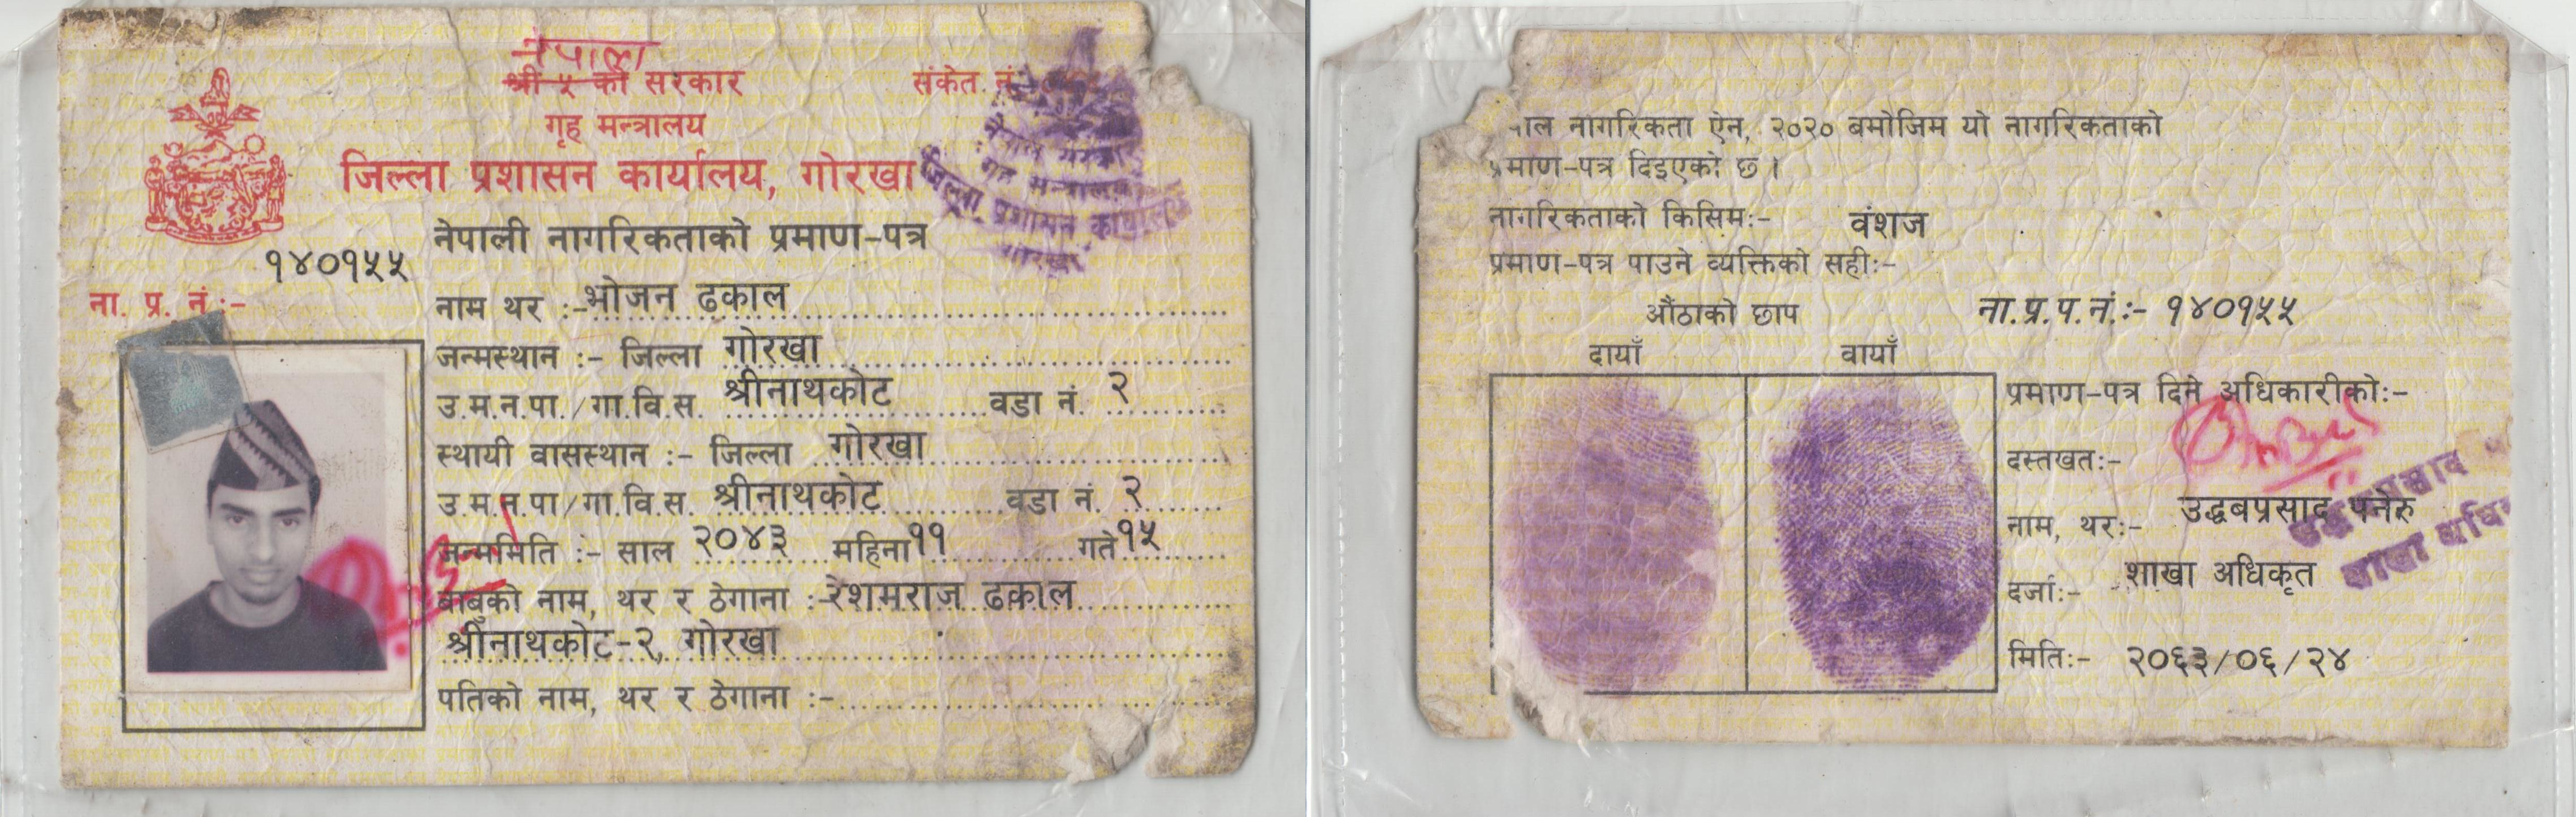 नेपाल
श्री ५ को सरकार
संकेत नं.
गृह मन्त्रालय
जिल्ला प्रशासन कार्यालय, गोरखा
नेपाल सरकार
गृह मन्त्रालय
जिल्ला प्रशासन कार्यालय
गोरखा
नेपाली नागरिकताको प्रमाण-पत्र
ना. प्र. नं.:- १४०१५५
नाम थर :- भोजन ढकाल
जन्मस्थान :- जिल्ला गोरखा
उ.म.न.पा./गा.वि.स. श्रीनाथकोट वडा नं. २
स्थायी वासस्थान :- जिल्ला गोरखा
उ.म.न.पा/गा.वि.स. श्रीनाथकोट वडा नं. २
जन्ममिति :- साल २०४३ महिना ११ गते १५
बाबुको नाम, थर र ठेगाना :- रेशमराज ढकाल
श्रीनाथकोट-२, गोरखा
पतिको नाम, थर र ठेगाना :-
नागरिकता ऐन, २०२० बमोजिम यो नागरिकताको
प्रमाण-पत्र दिइएको छ ।
नागरिकताको किसिम:- वंशज
प्रमाण-पत्र पाउने व्यक्तिको सही:-
औंठाको छाप
ना.प्र.प.नं.:- १४०१५५
दायाँ वायाँ
प्रमाण-पत्र दिने अधिकारीको:-
दस्तखत:-
नाम, थर:- उद्धबप्रसाद पनेरु
दर्जा:- शाखा अधिकृत
मिति:- २०६३/०६/२४